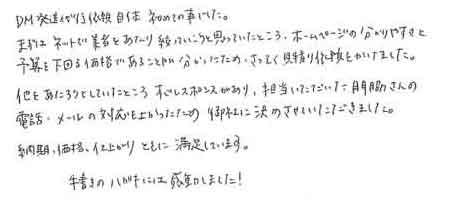 DM発送代行依頼自体 初めての事でした。
まずは ネットで業者をあたり 絞っていこうと思っていたところ、ホームページの分かりやすさと
予算を下回る価格であることが分かったため、さっそく見積り依頼をかけました。
他をあたろうとしていたところ すぐレスポンスがあり、担当いただいた さんの
電話・メールの対応も良かったため 御社に決めさせていただきました。
納期、価格、仕上がり ともに 満足しています。
手書きのハガキには感動しました!